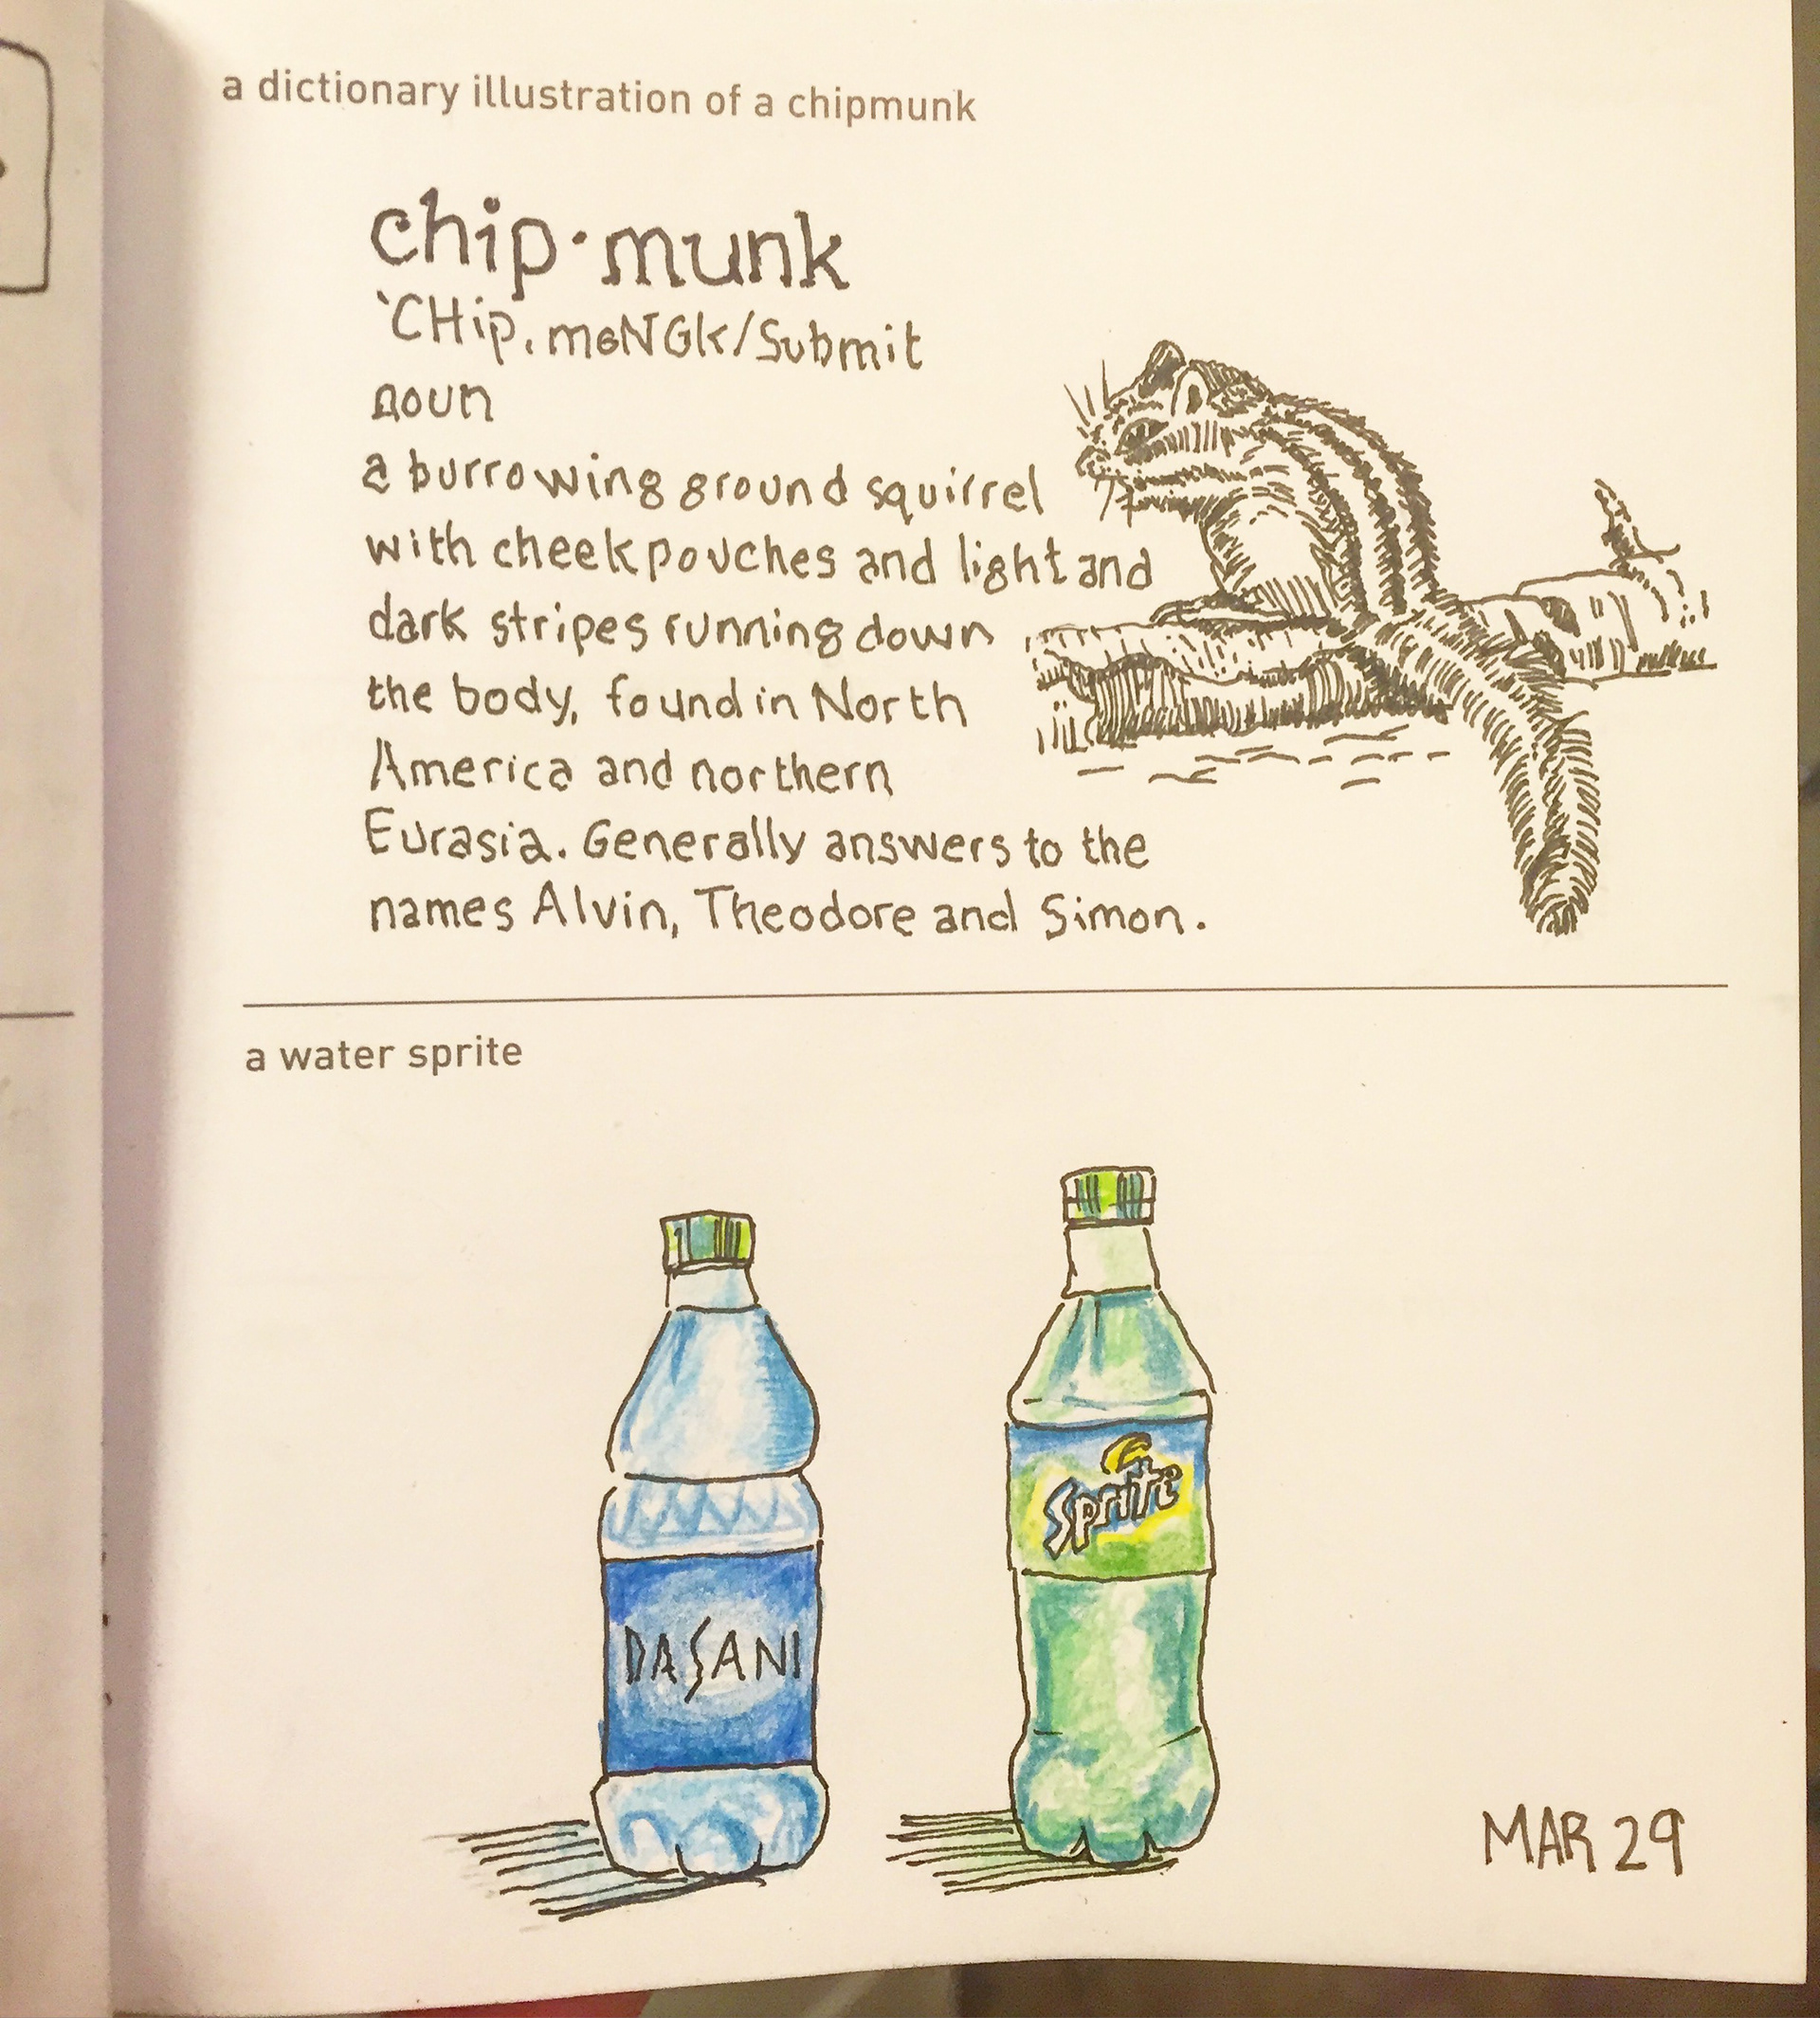 a dictionary illustration of a chipmunk
chip·munk
ˋCHip,məNGk/Submit
noun
a burrowing ground squirrel
with cheek pouches and light and
dark stripes running down
the body, found in North
America and northern
Eurasia. Generally answers to the
names Alvin, Theodore and Simon.
a water sprite
DASANI
Sprite
MAR 29